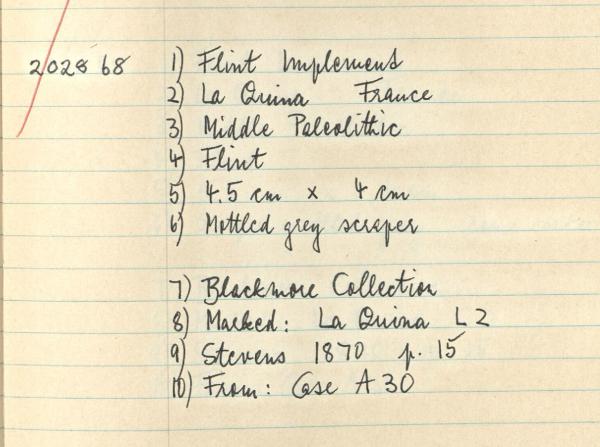 2028 68 1) Flint Implement
2) La Quina France
3) Middle Paleolithic
4) Flint
5) 4.5 cm x 4 cm
6) Mottled grey scraper
7) Blackmore Collection
8) Marked: La Quina L 2
9) Stevens 1870 p. 15
10) From: Case A 30